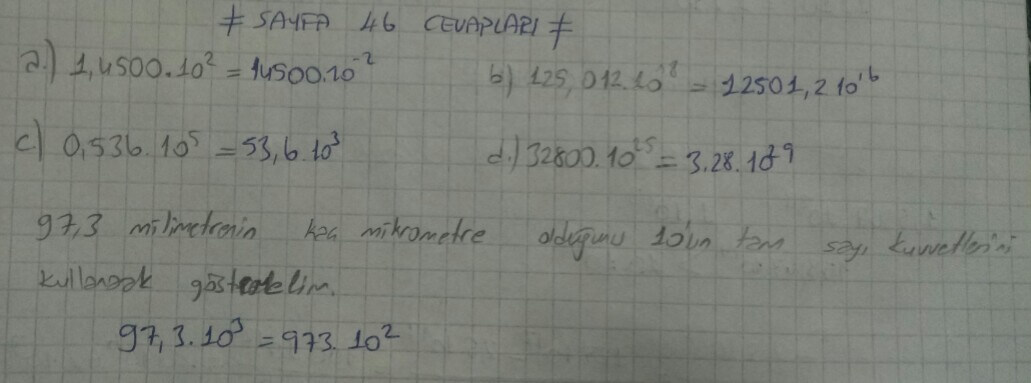 ≠ SAYFA 46 CEVAPLARI ≠
a.) 1,4500.10² = 14500.10⁻² b) 125,012.10¹⁸ = 12501,2 10¹⁶
c) 0,536.10⁵ = 53,6.10³ d.) 32800.10²⁵ = 3.28.10²⁹
97,3 milimetrenin kaç mikrometre olduğunu 10'un tam sayı kuvvetlerini
kullanarak gösterelim.
97,3.10³ = 973.10²